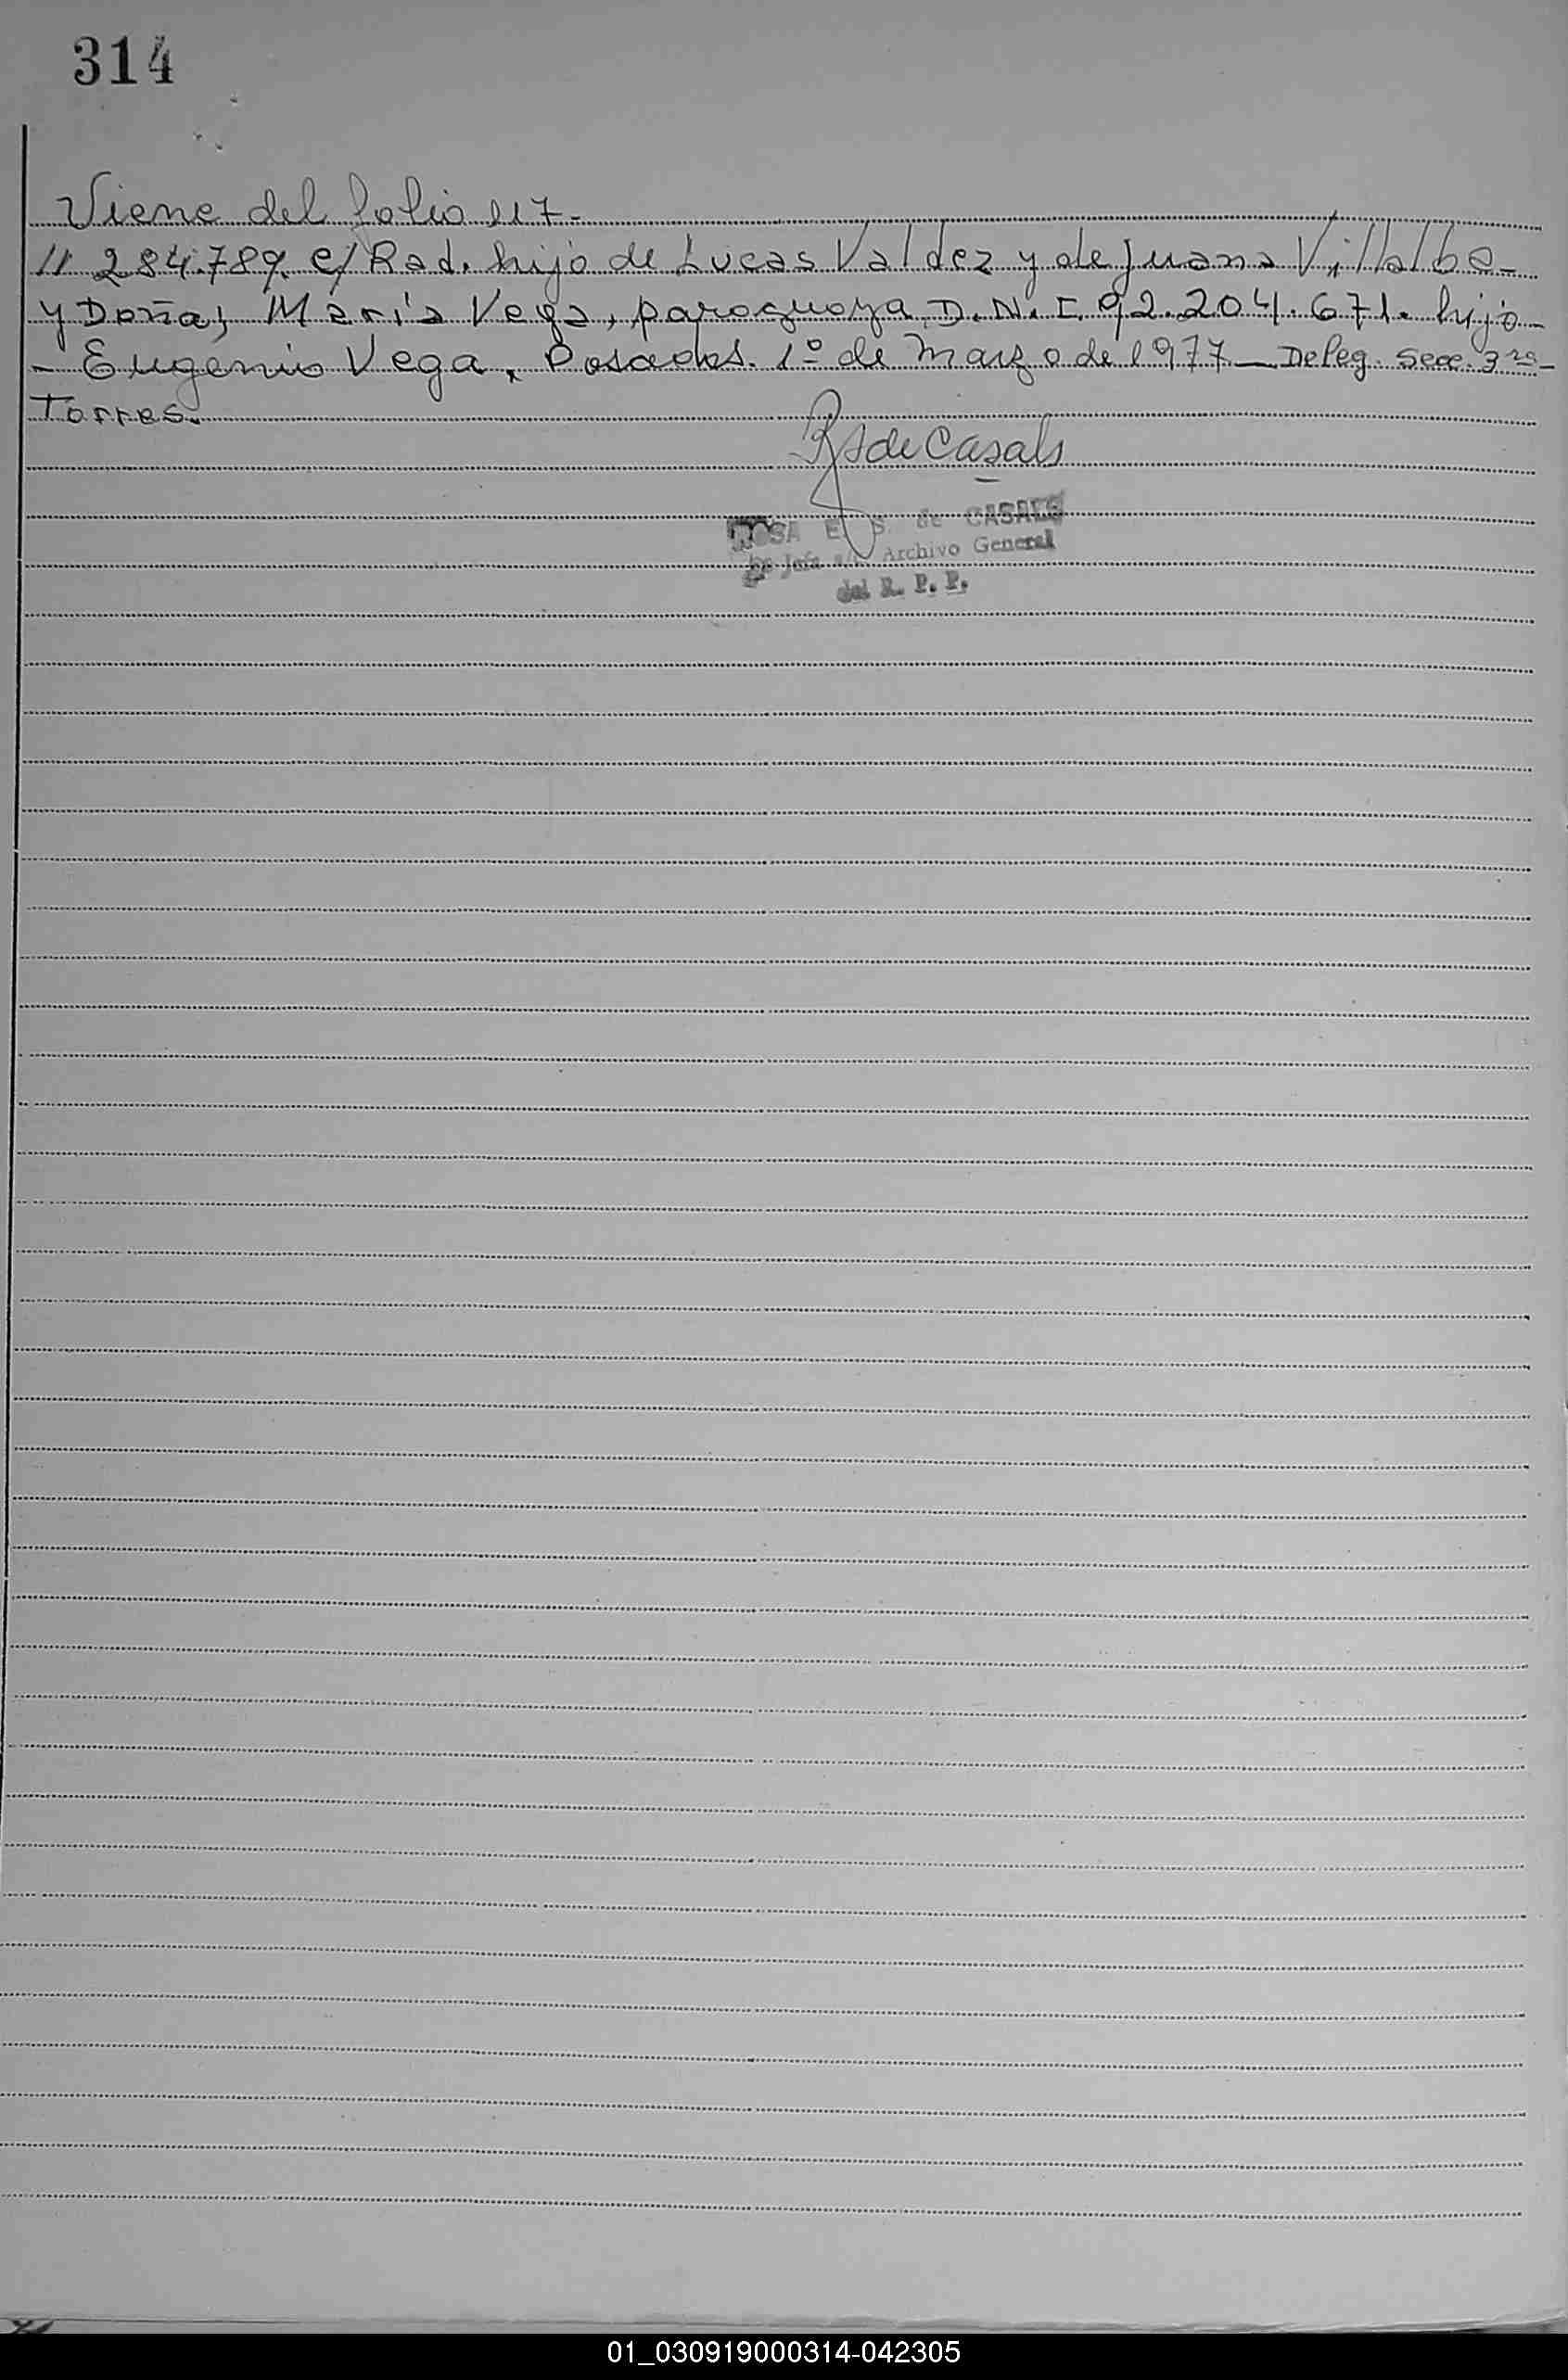 314
Viene del folio 117-
// 284.789. c/ Rad. hijo de Lucas Valdez y de Juana Villalba-
y Doña, María Vega, paraguaya D.N.I. 92.204.671. hija-
- Eugenio Vega, Posadas. 1º de Marzo de 1977 — Deleg. Secc. 3ra-
Torres.
de Casals
ROSA E. S. de CASALS
Jefa a/c Archivo General
del R. P. P.
01_030919000314-042305